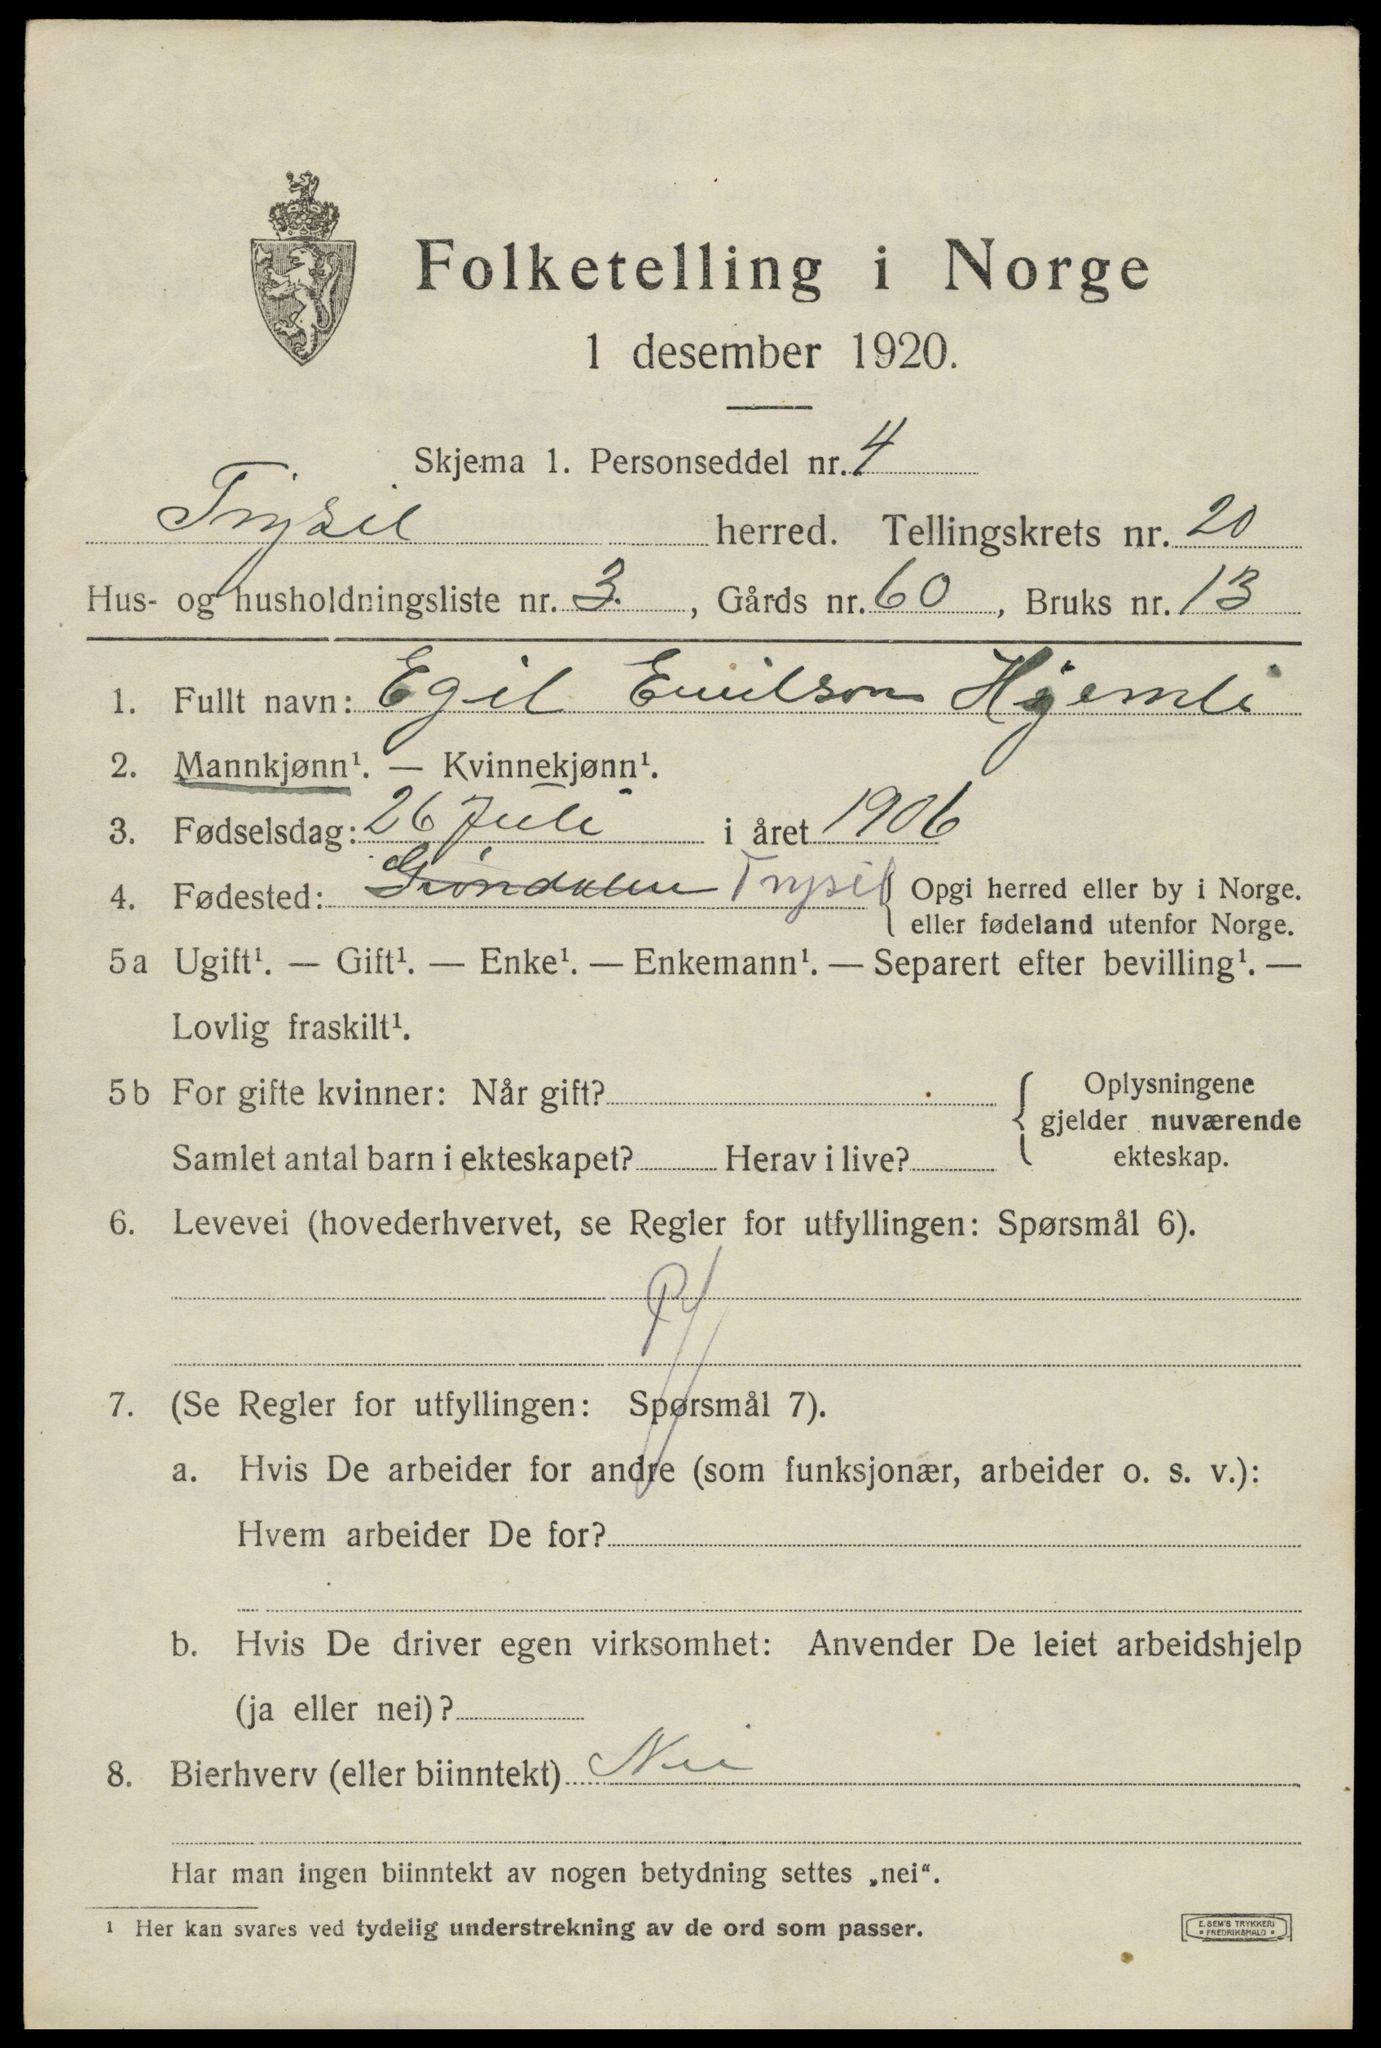 Folketelling i Norge
1 desember 1920.
Skjema 1. Personseddel nr. 4
Trysil herred. Tellingskrets nr. 20
Hus- og husholdningsliste nr. 3. , Gårds nr. 60 , Bruks nr. 13
1. Fullt navn: Egil Emilson Hjemli
2. Mannkjønn¹. — Kvinnekjønn¹.
3. Fødselsdag: 26 Juli i året 1906
4. Fødested: Grøndalen Trysil { Opgi herred eller by i Norge.
eller fødeland utenfor Norge.
5a Ugift¹. — Gift¹. — Enke¹. — Enkemann¹. — Separert efter bevilling¹. —
Lovlig fraskilt¹.
5b For gifte kvinner: Når gift?
Samlet antal barn i ekteskapet? Herav i live?
{ Oplysningene
gjelder nuværende
ekteskap.
6. Levevei (hovederhvervet, se Regler for utfyllingen: Spørsmål 6).
7. (Se Regler for utfyllingen: Spørsmål 7).
a. Hvis De arbeider for andre (som funksjonær, arbeider o. s. v.):
Hvem arbeider De for?
b. Hvis De driver egen virksomhet: Anvender De leiet arbeidshjelp
(ja eller nei)?
8. Bierhverv (eller biinntekt) Nei
Har man ingen biinntekt av nogen betydning settes „nei“.
¹ Her kan svares ved tydelig understrekning av de ord som passer.
E. SEM'S TRYKKERI
• FREDRIKSHALD •